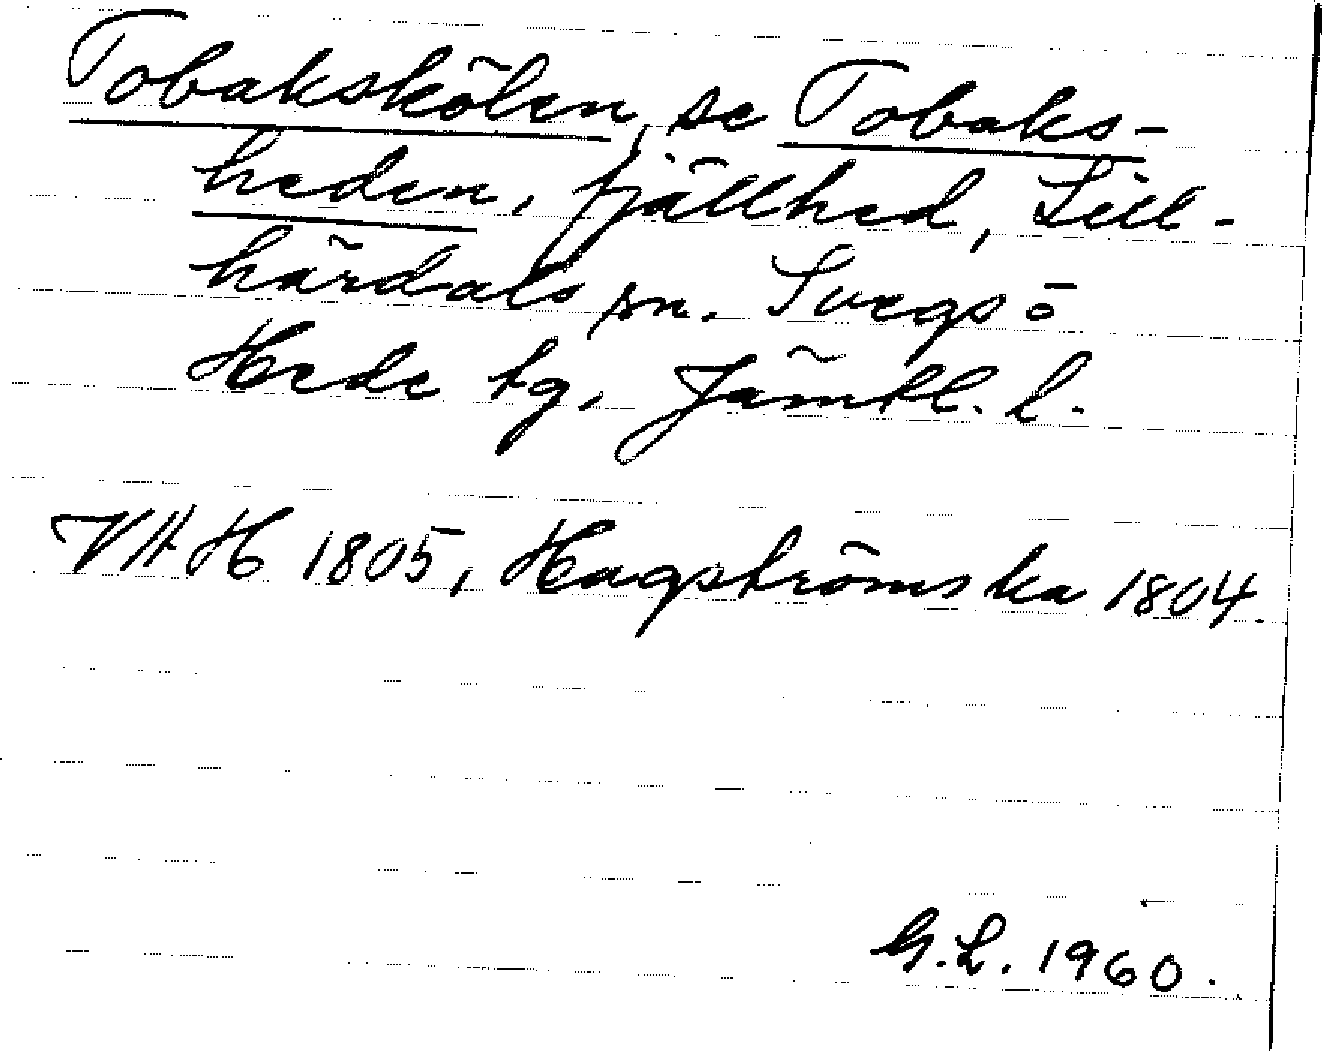 Tobakskölen, se Tobaks-
heden, fjällhed, Lill-
härdals sn. Svegs o
Hede tg, Jämtl. l.
VAH 1805, Hagströmska 1804.
G.L. 1960.